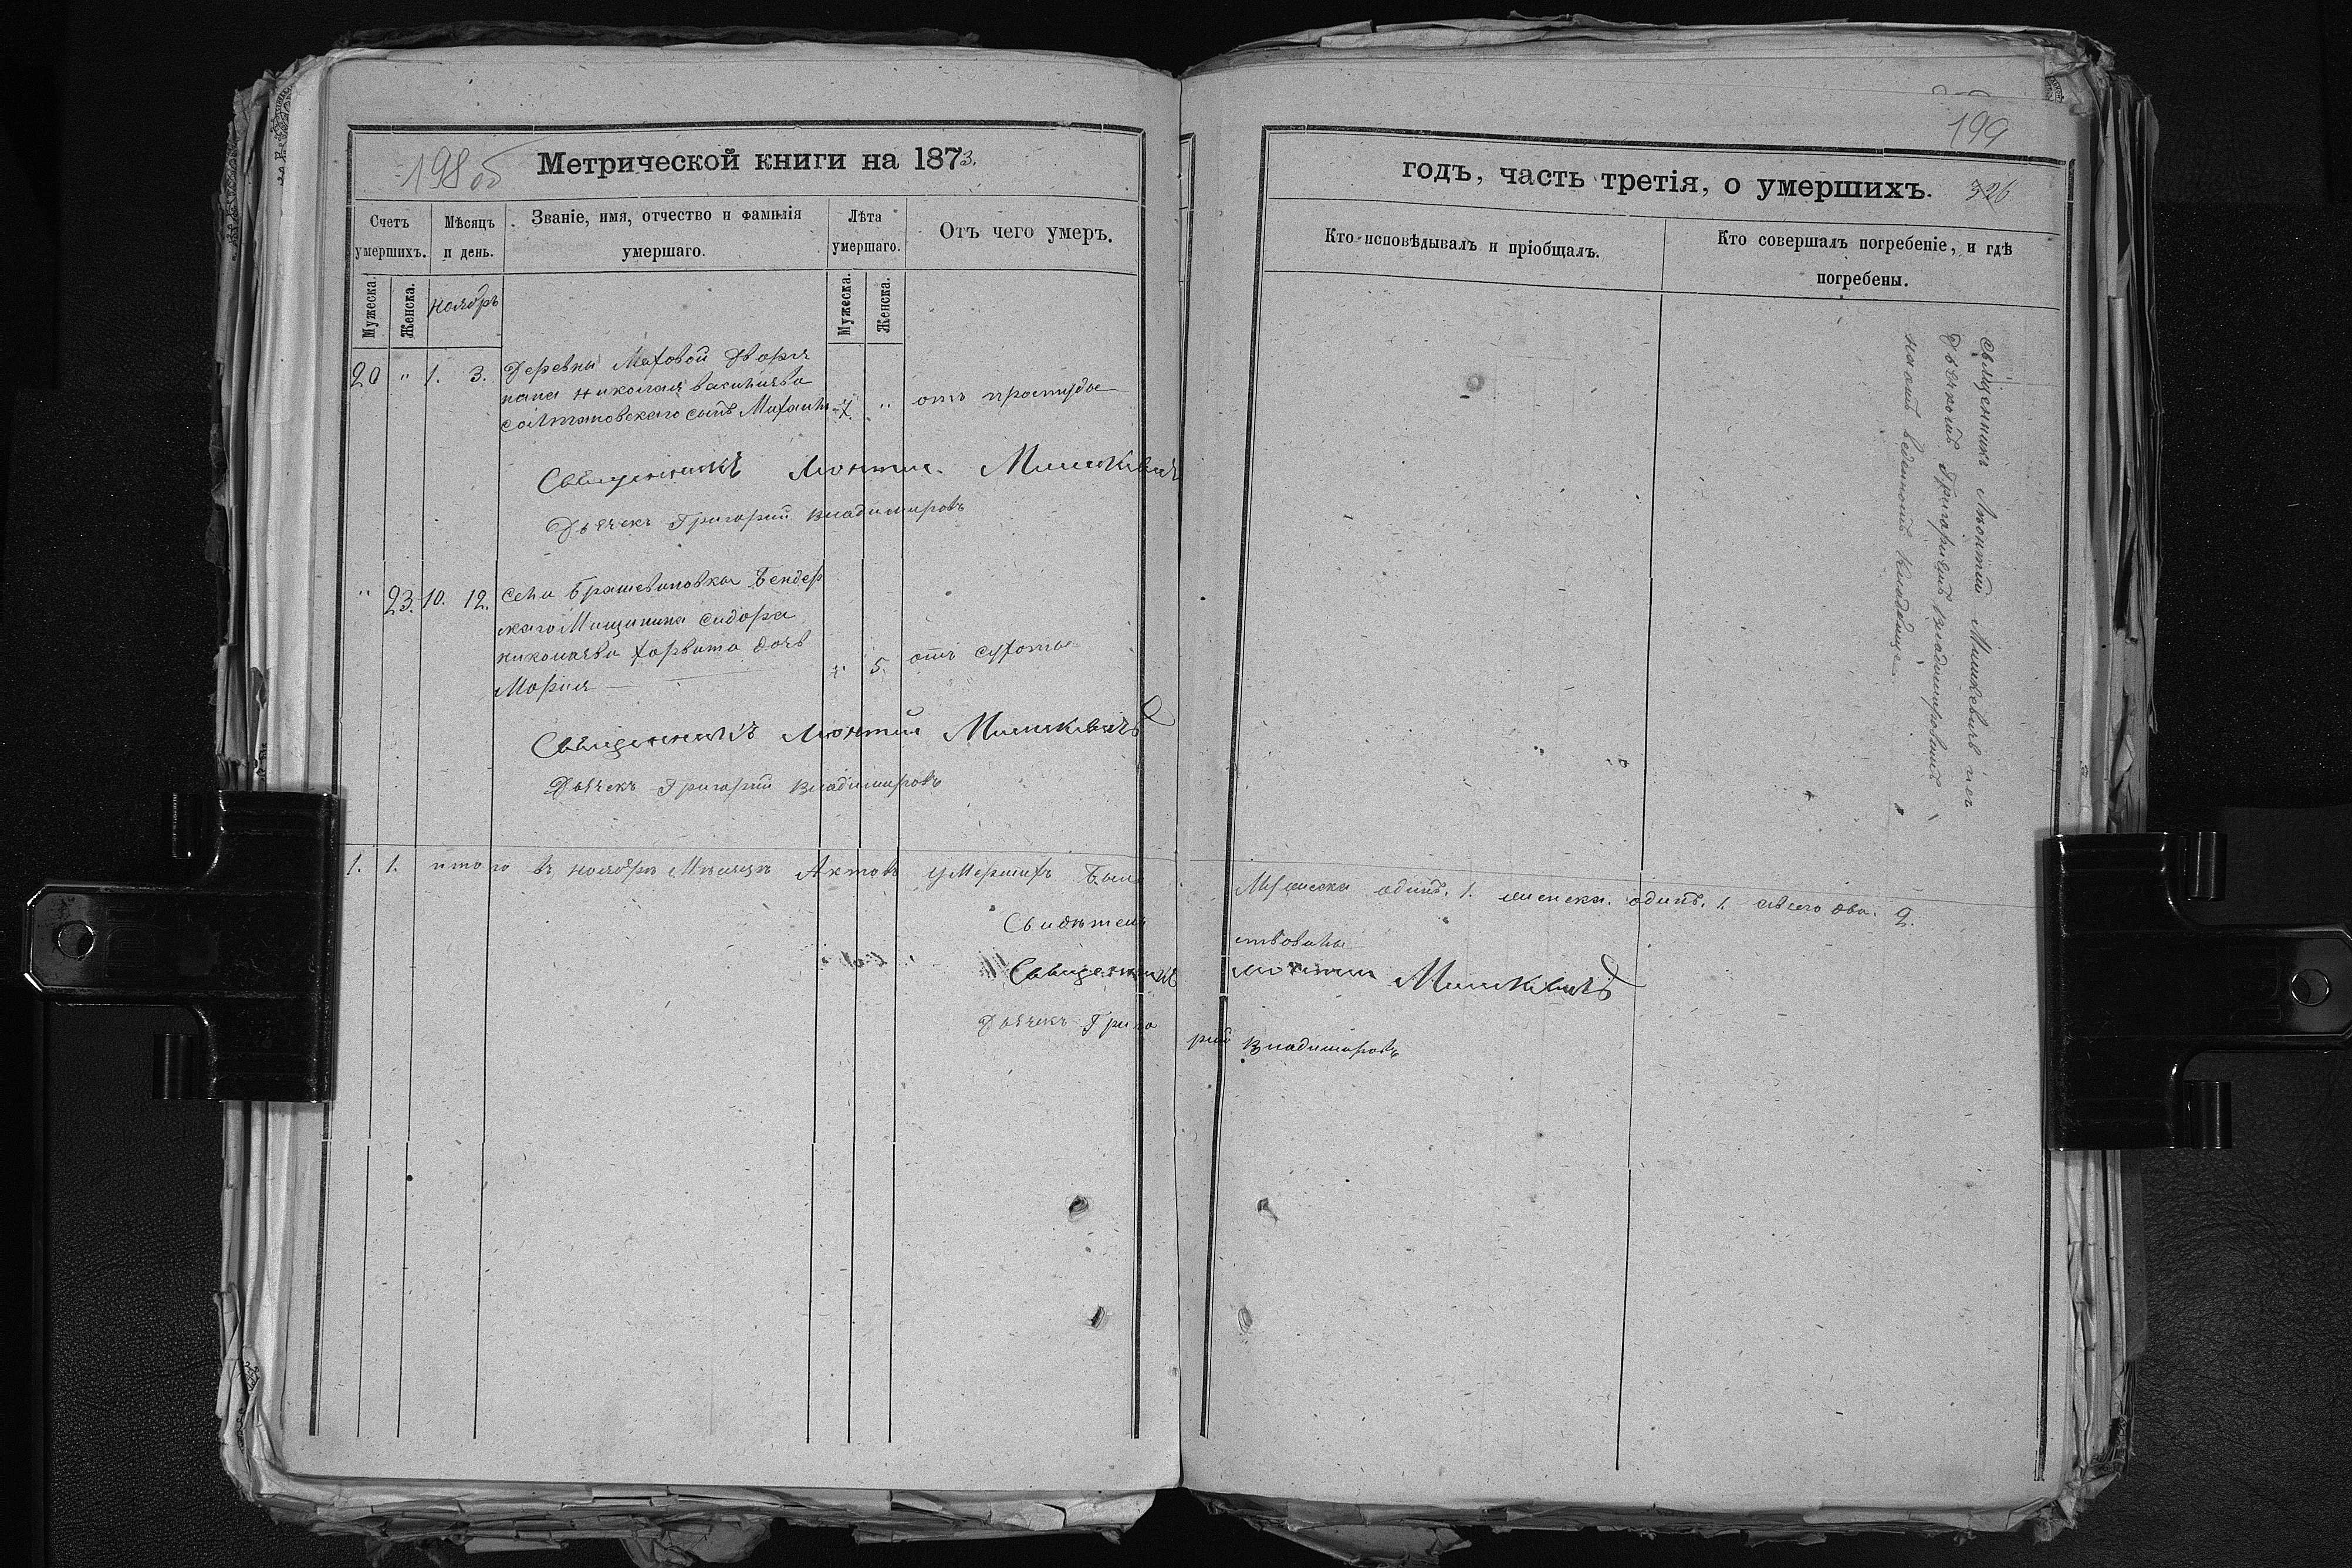 198 об
Метрической книги на 1873.
Счетъ умершихъ.
Мѣсяцъ и день.
Званіе, имя, отчество и фамилія умершаго.
Лѣта умершаго.
Отъ чего умеръ.
Мужеска.
Женска.
ноябрь
Мужеска.
Женска.
20 " 1. 3. Деревни Маховой Дворя
нина Николая Васильева
сынъ Михаилъ 7. " отъ простуды
Священникъ Леонтий Мишкевичъ
Дьячекъ Григорий Владимировъ
" 23. 10. 12. Села Брашевановка Бендер
скаго Мищанина Сидора
Николаева Хорвата дочь
Мария " 5. отъ сухоты
Священникъ Леонтий Мишкевичъ
Дьячекъ Григорий Владимировъ
1. 1. итого въ ноябрѣ Мѣсяцѣ Актовъ умершихъ было
Свидѣтель
Священникъ
Дьячекъ Григо
199
годъ, часть третія, о умершихъ. 326
Кто исповѣдывалъ и пріобщалъ.
Кто совершалъ погребеніе, и гдѣ погребены.
Священникъ Леонтий Мишкевичъ и съ
Дьячкомъ Григориемъ Владимировымъ
кладбище
Мужеска одинъ. 1. женска. одинъ. 1. двa. 2.
ствовалы
Леонтий Мишкевичъ
рий Владимировъ